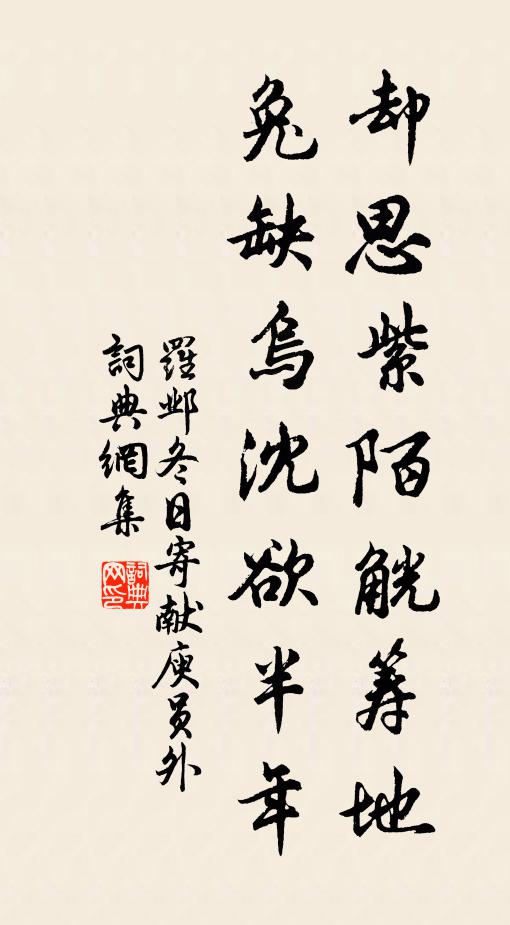 却思紫陌觥筹地
兔缺烏沈欲半年
羅邺冬日寄献庾员外
詞典網集
詞典网印